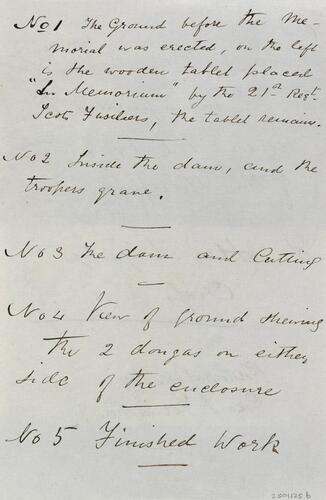 No 1 The Ground before the Me-
morial was erected, on the left
is the wooden tablet placed
"In Memorium" by the 21st Regt.
Scots Fusiliers, the tablet remains.
No 2 Inside the dam, and the
troopers grave.
No 3 The dam and Cutting
No 4 View of ground shewing
the 2 dongas on either
side of the enclosure
No 5 Finished Work
2501125 b